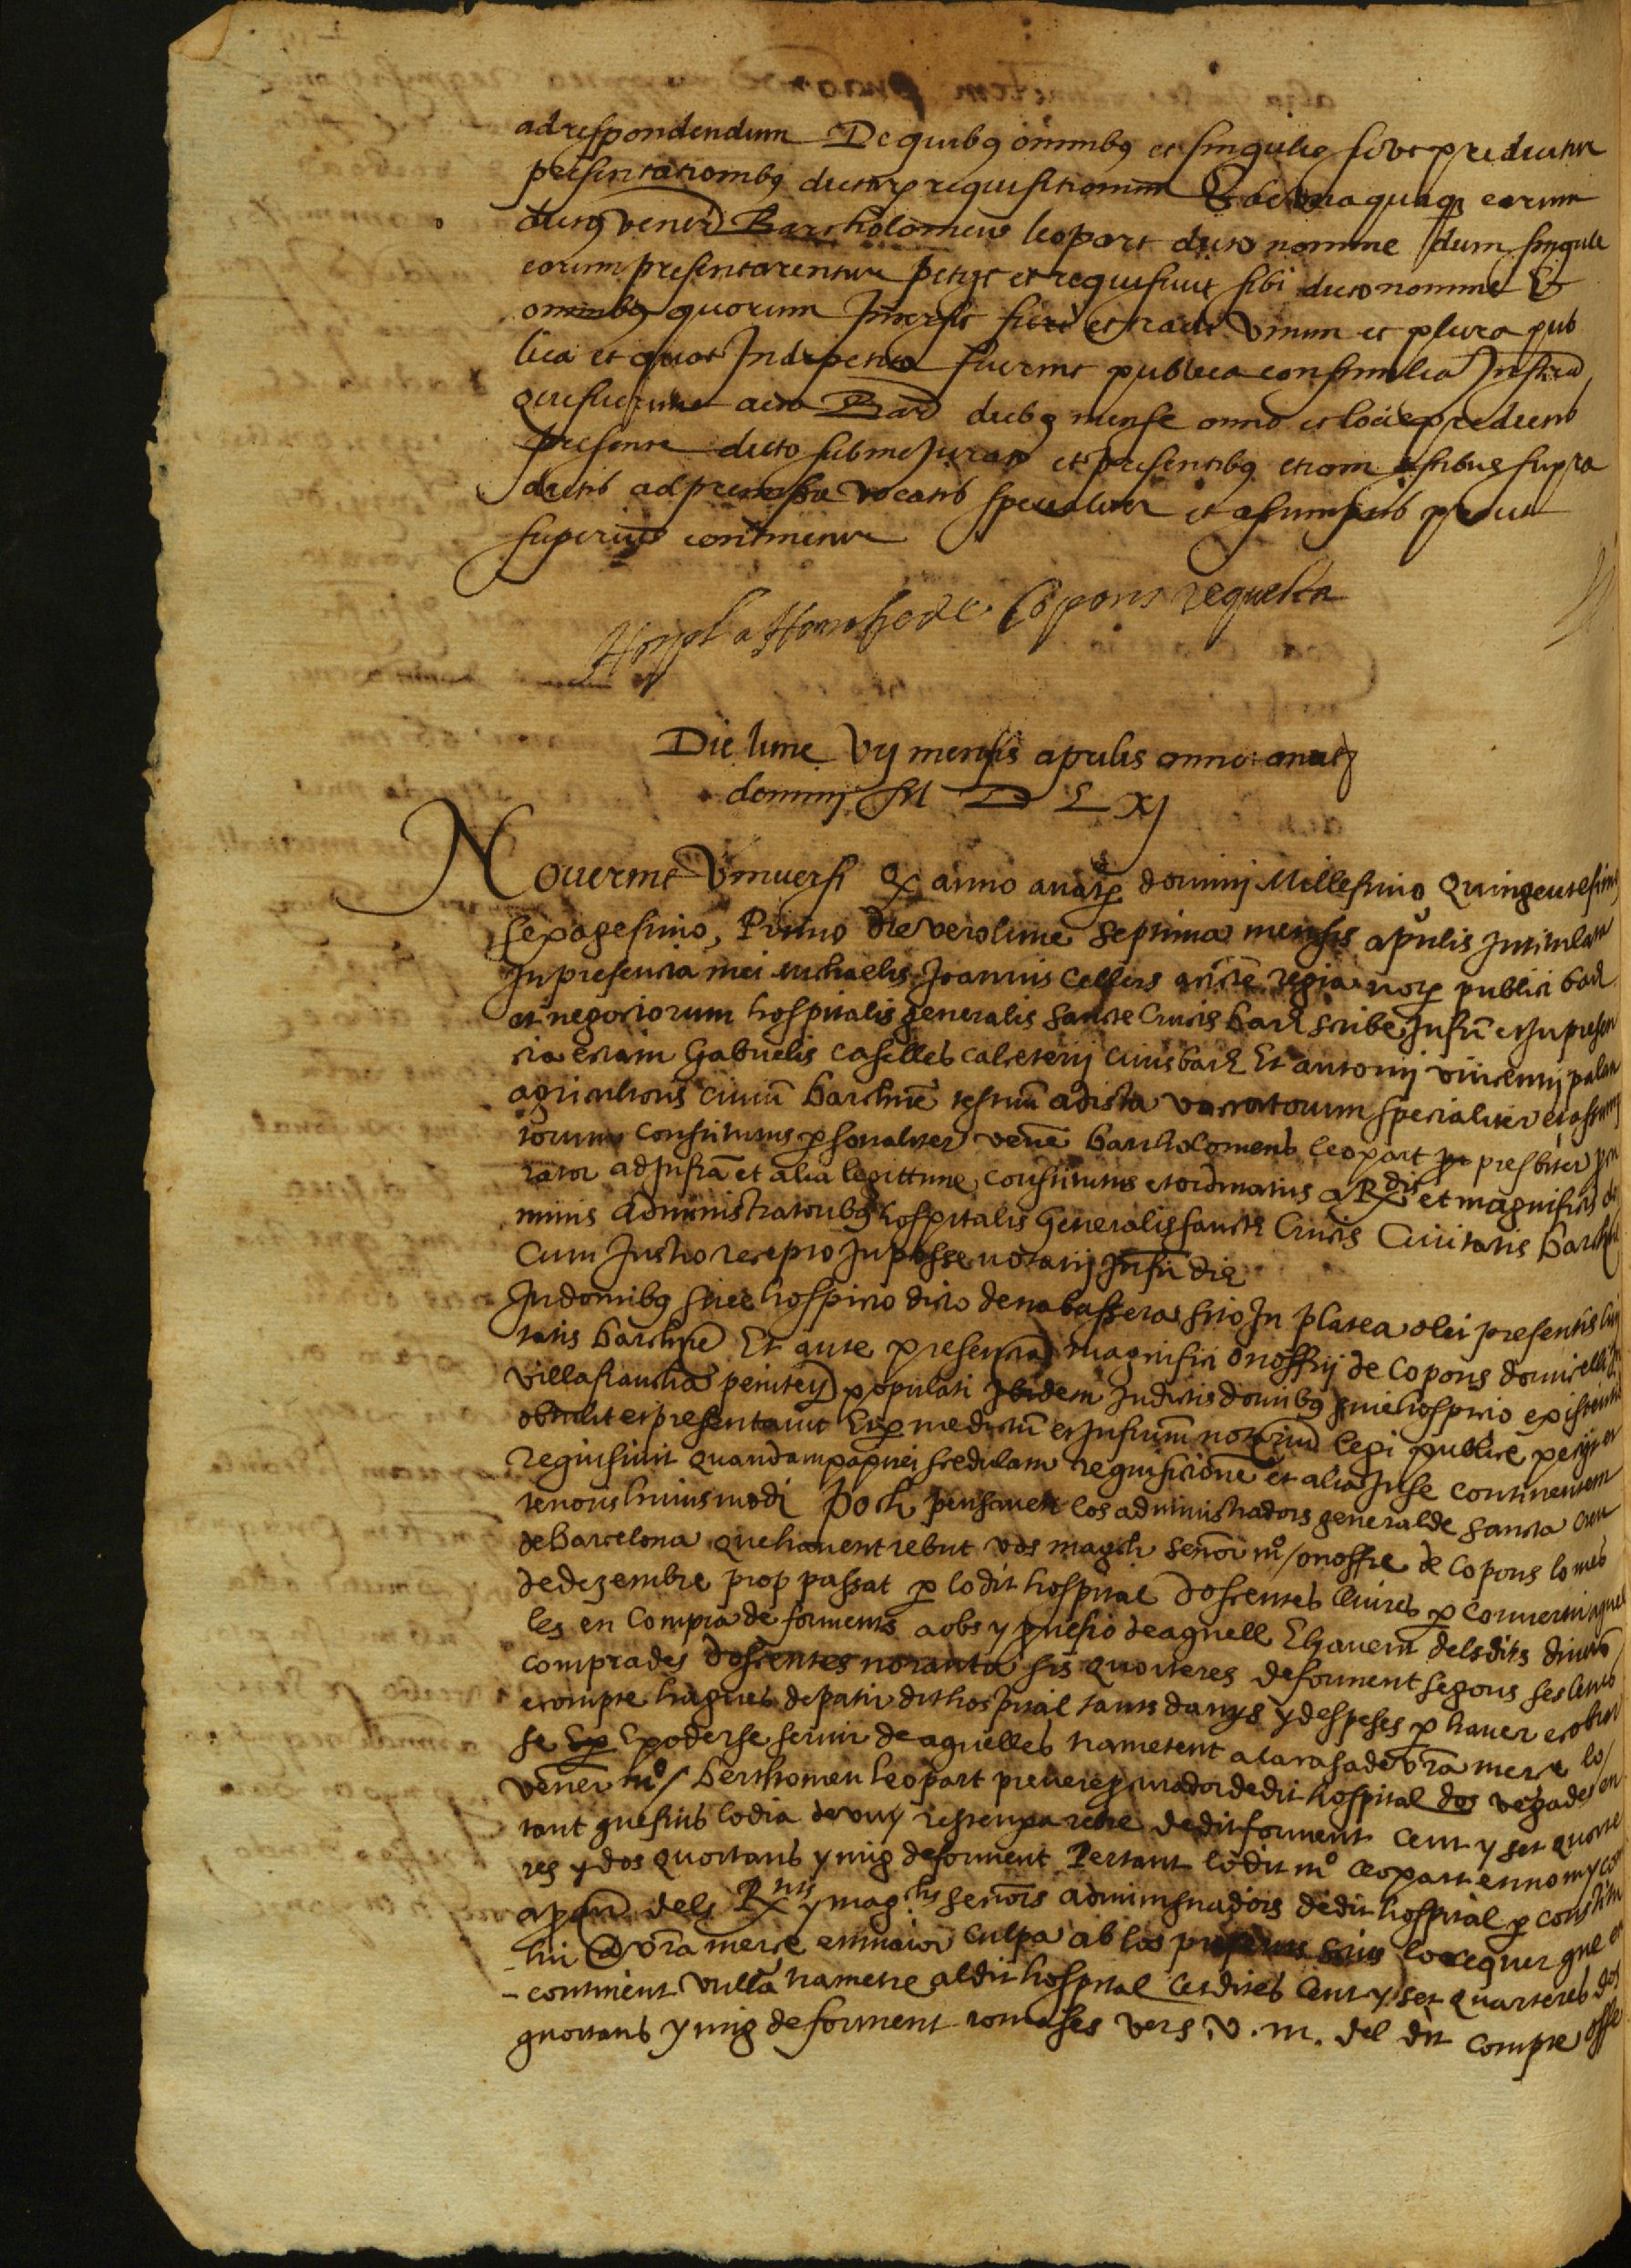 ad respondendum De quibq omnibq et singulis sive predictar
presentationibq dictarq requisitionum Et de unaquaqq earum
dictq venerl Bartholomeus leopart dicto nomine dum singule
eorum presentarentur petijt et requisiuit sibi dicto nomine Et
omnibq quorum Intersit fieri et tradi Vnum et plura pub
lica et quot Inde petita fuerint publica consimilia Instra
Que fuerunt acta Bar diebq mense anno et locis predictis
presente dicto submejurato et presentibq etiam testibus supra
dictis ad premissa vocatis specialiter et assumptis prout
superius continetur
Hospl a Honofre de Copons requesta
Die lune Vij mensis aprilis anno anat
domini M D L Xj
Nouerint Vniuersi q anno anatq domini Millesimo Quingentesimo
sexagesimo, Primo die vero lune septima mensis aprilis Intitulata
In presencia mei michaelis Joannis Cellers aucte regia notq publici bar
et negociorum hospitalis generalis sancte Crucis bar scribe Infri et In presen
cia etiam Gabrielis caselles calceterij ciuis bar Et antonij vincentij palau
agricultoris ciuiu barchine testiu ad ista vocatorum specialiter et assump
torum Constitutus psonaliter vene bartholomeus leopart presbiter pcu
rator ad Infra et alia legittime constitutus et ordinatus a Rdis et magnificis do
minis administratoribq hospitalis Generalis sancte Crucis Ciuitatis barchne
Cum Instro recepto In posse notarij Infri die
In domibq siue hospicio dicto de na bassera sito In platea olei presentis Ciui
tatis barchne Et ante presencia magnifici onoffrij de Copons domicelli In
villafrancha penitey populati Ibidem In dictis domibq siue hospicio existentis
obtulit et presentauit Et p me dictu et Infrium notriu legi publice petijt et
requisiuit quandam papirei scedulam requisicione et alia In se continentem
tenoris huiusmodi Poch pensauen los administradors general de sancta creu
de barcelona que hauent rebut vos magch senor mo / onoffre de Copons lo mes
de dezembre prop passat p lo dit hospital doscentes lliures p conuertir aque
les en Compra de forments a obs y prouisio de aquell E hauent dels dits diners
comprades doscentes noranta sis quorteres de forment segons ses letres
e compte hagues de patir dit hospital tants danys y despeses p hauer e cobrar
se E poderse seruir de aquelles trametent a la casa de vra merce lo /
vener mo / berthomeu leopart preuere pcurador de dit hospital dos vegades en
tant que fins lo dia de vuy resten pa rebre de dit forment Cent y set quorte
res y dos quortans y mig de forment Pertant lo dit mo leopart en nom y com
a pcur dels Rnts y magchs senors administradors de dit hospital p constitu
hir a vra merce en maior culpa ab los lo requer que en
continent vulla trametre al dit hospital les dites Cent y set quarteres dos
quortans y mig de forment romases vers v. m. del dit compte offe